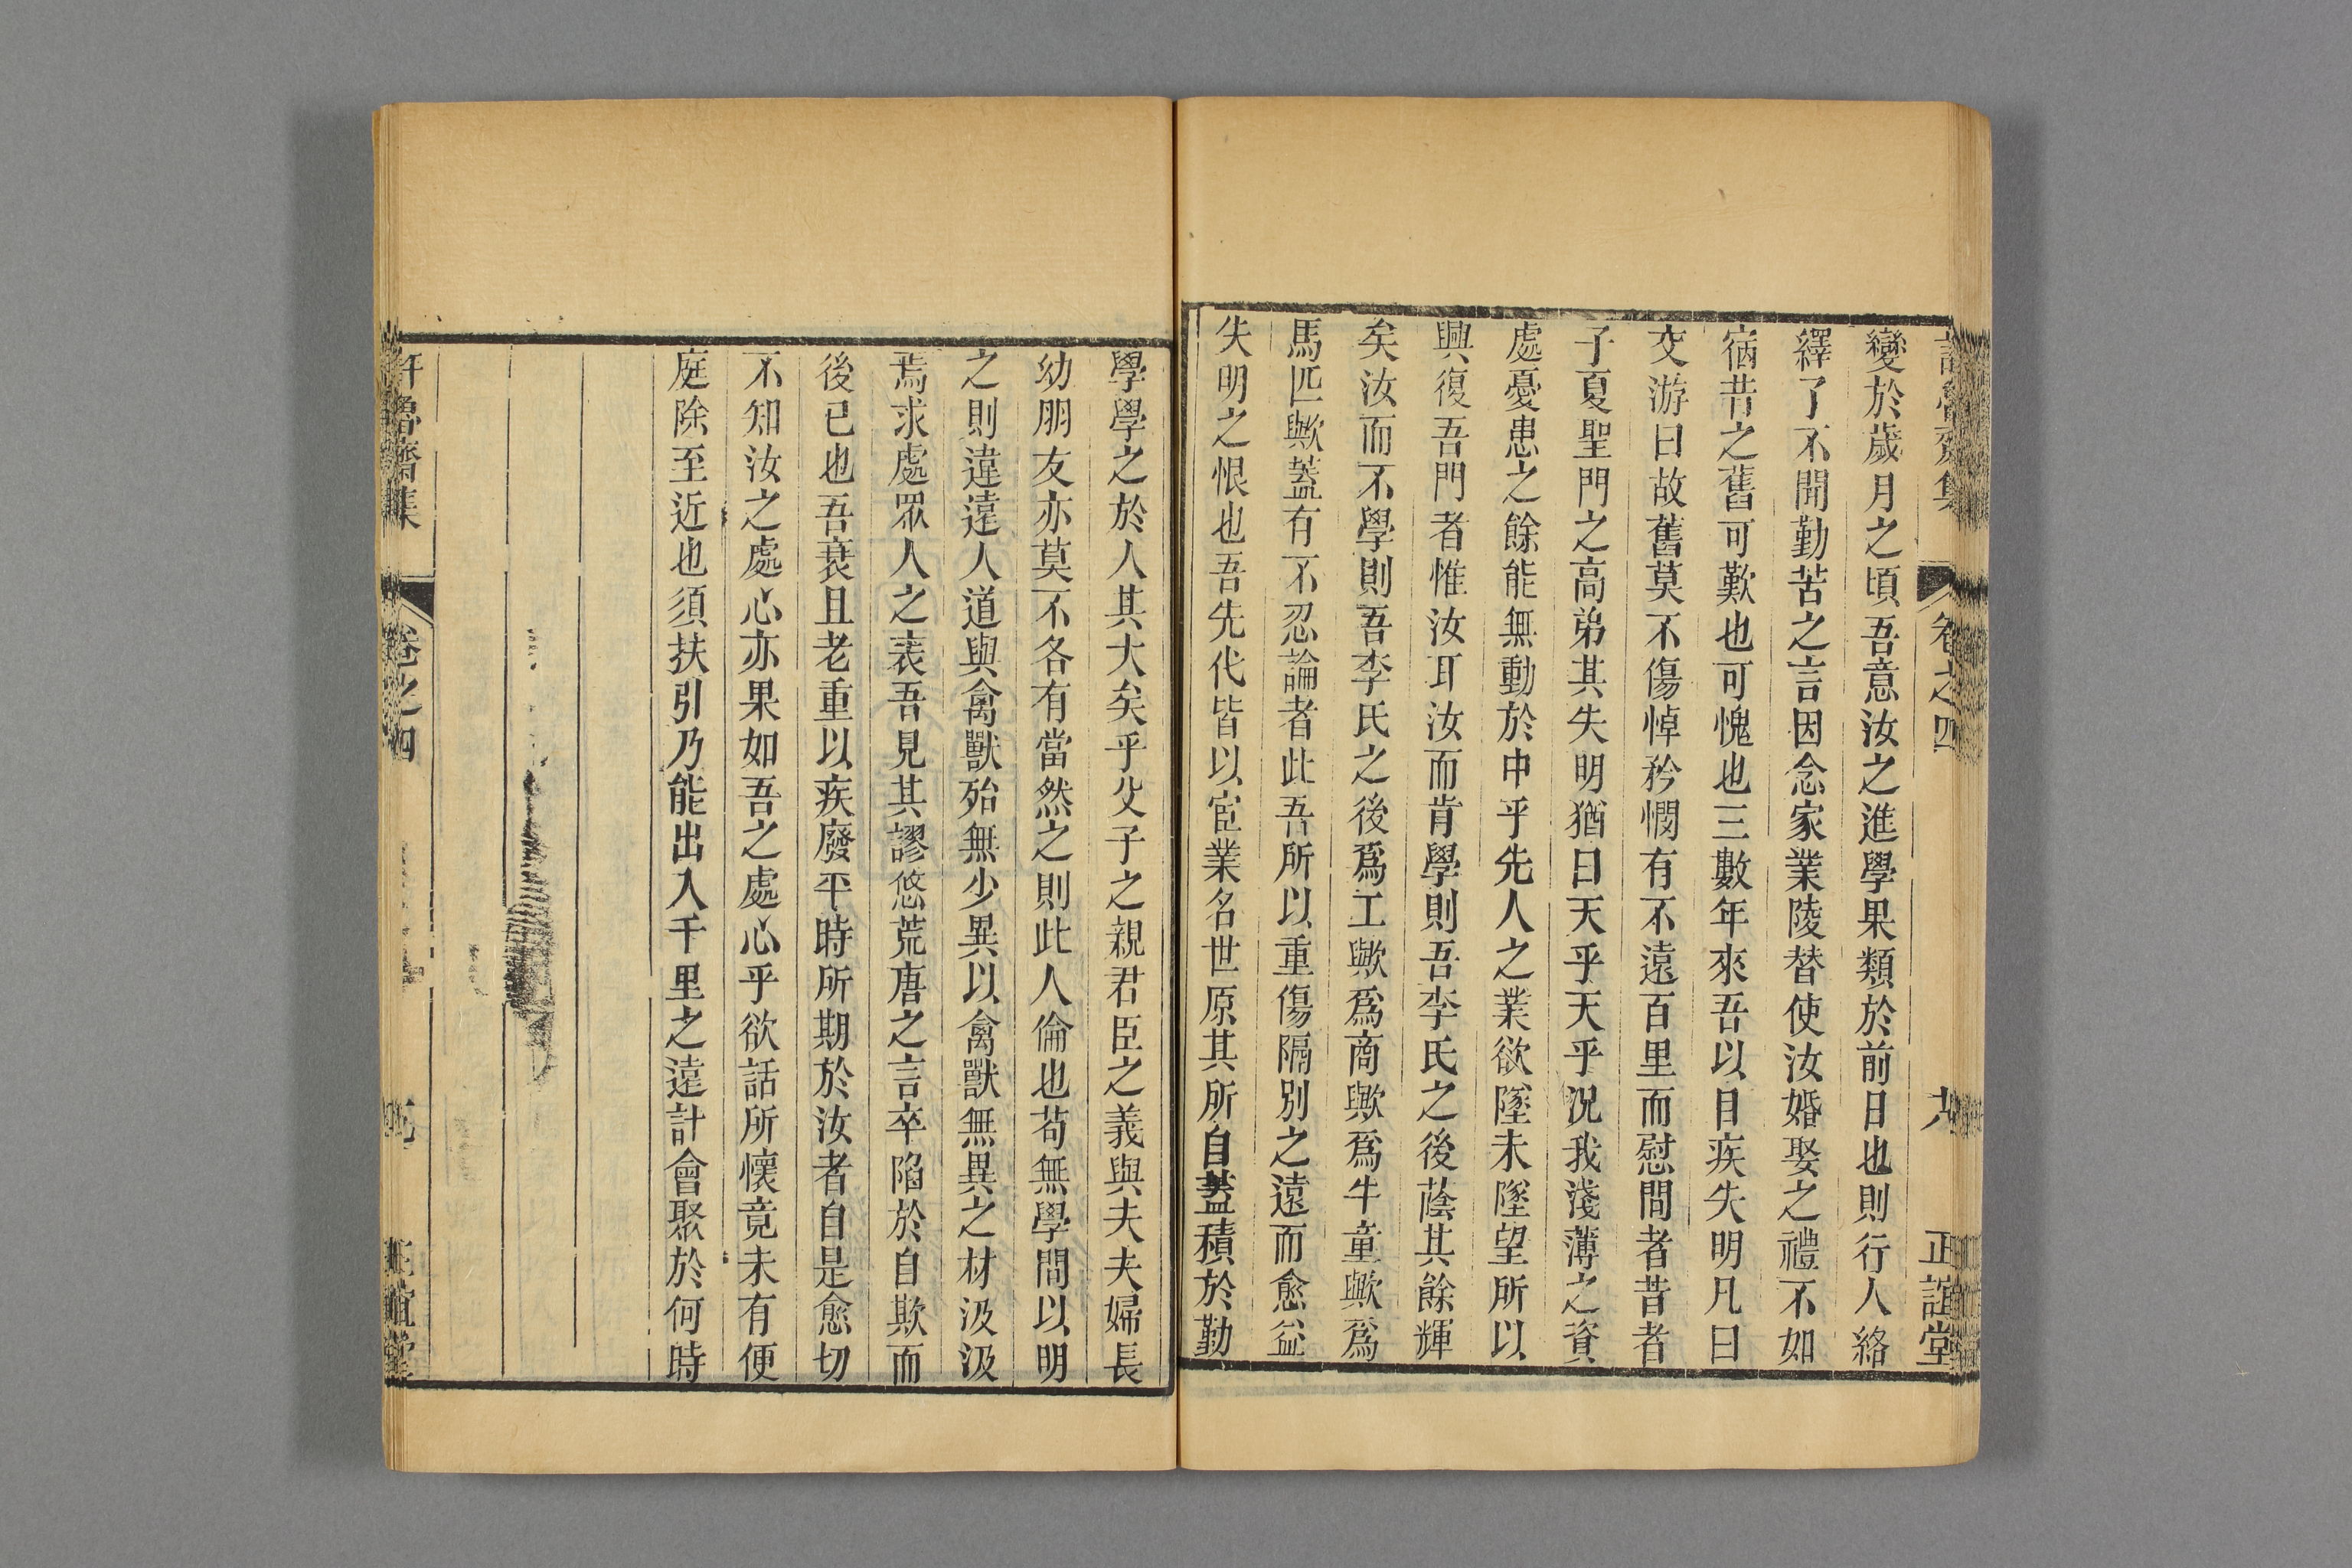 許魯齋集
卷之四
六
正誼堂
變於歲月之頃吾意汝之進學果類於前日也則行人絡
繹了不聞勤苦之言因念家業陵替使汝婚娶之禮不如
宿昔之舊可歎也可愧也三數年來吾以目疾失明凡曰
交游曰故舊莫不傷悼矜憫有不遠百里而慰問者昔者
子夏聖門之高弟其失明猶曰天乎天乎況我淺薄之資
處憂患之餘能無動於中乎先人之業欲墜未墜望所以
興復吾門者惟汝耳汝而肯學則吾李氏之後蔭其餘輝
矣汝而不學則吾李氏之後爲工歟爲商歟爲牛童歟爲
馬匹歟蓋有不忍論者此吾所以重傷隔別之遠而愈益
失明之恨也吾先代皆以宦業名世原其所自蓋積於勤
學學之於人其大矣乎父子之親君臣之義與夫夫婦長
幼朋友亦莫不各有當然之則此人倫也苟無學問以明
之則違遠人道與禽獸殆無少異以禽獸無異之材汲汲
焉求處眾人之表吾見其謬悠荒唐之言卒陷於自欺而
後已也吾衰且老重以疾廢平時所期於汝者自是愈切
不知汝之處心亦果如吾之處心乎欲話所懷竟未有便
庭除至近也須扶引乃能出入千里之遠計會聚於何時
許魯齋集
卷之四
正誼堂